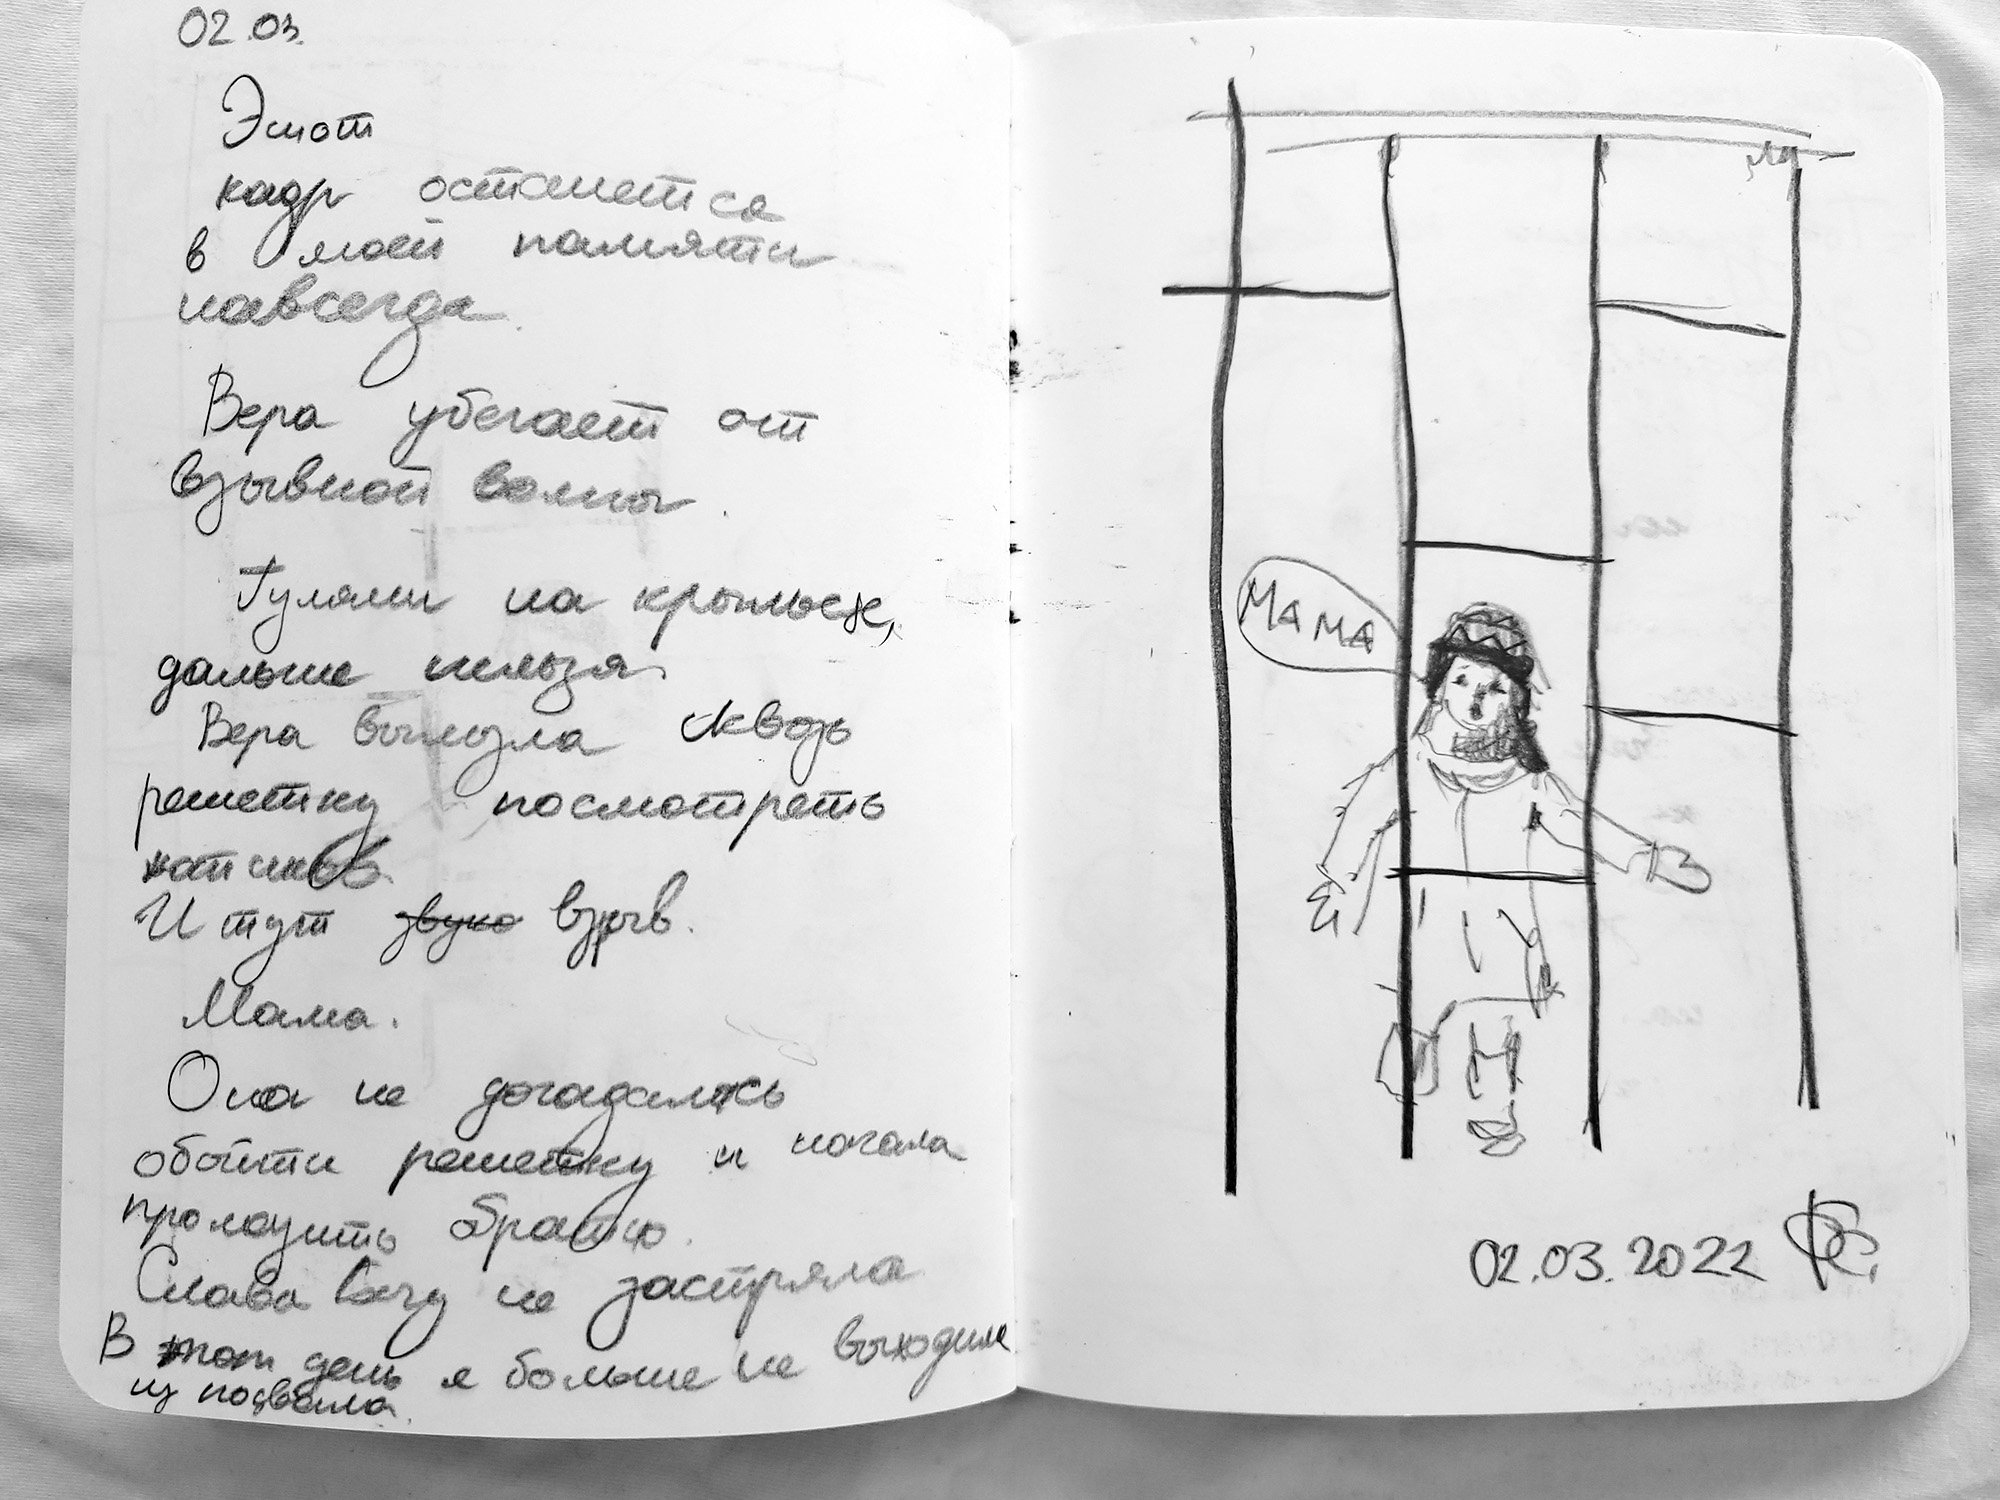 02.03.
Этот
кадр останется
в моей памяти
навсегда.
Вера убегает от
взывной волны.
Гуляли на крыльце,
дальше нельзя.
Вера вылезла сквозь
решетку посмотреть
котиков.
И тут звуко взрыв.
Мама.
Она не догадалась
обойти решетку и начала
пролазить братно.
Слава Богу не застряла
В этот день я больше не выходила
из подвала.
МАМА
02.03.2022